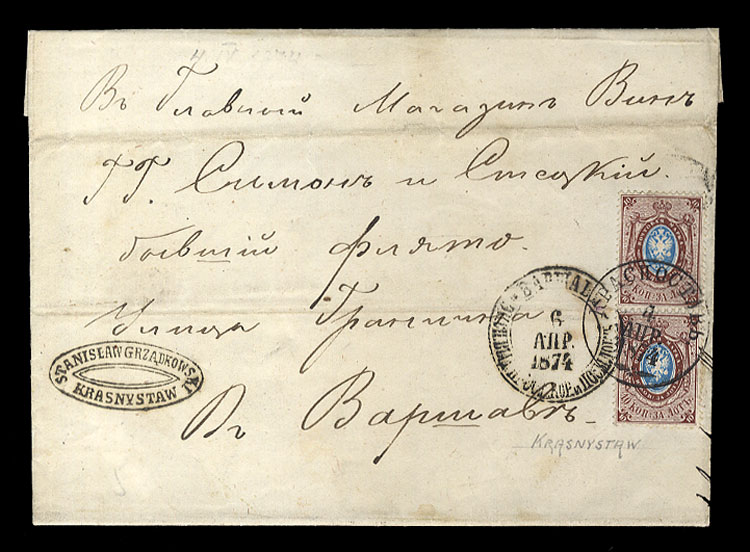 4 IV 1874
Въ Главный Магазинъ Винъ
ГГ. Симонъ и Стецкій.
бывшій Флято.
Улица Граничная
Въ Варшавѣ.
STANISŁAW GRZĄDKOWSKI
KRASNYSTAW
ВАРШАВ
6
АПР.
1874
2
КРАСНОСТАВЪ
4
АПР.
1874
10 КОП. ЗА ЛОТЪ
10 КОП. ЗА ЛОТЪ
KRASNYSTAW